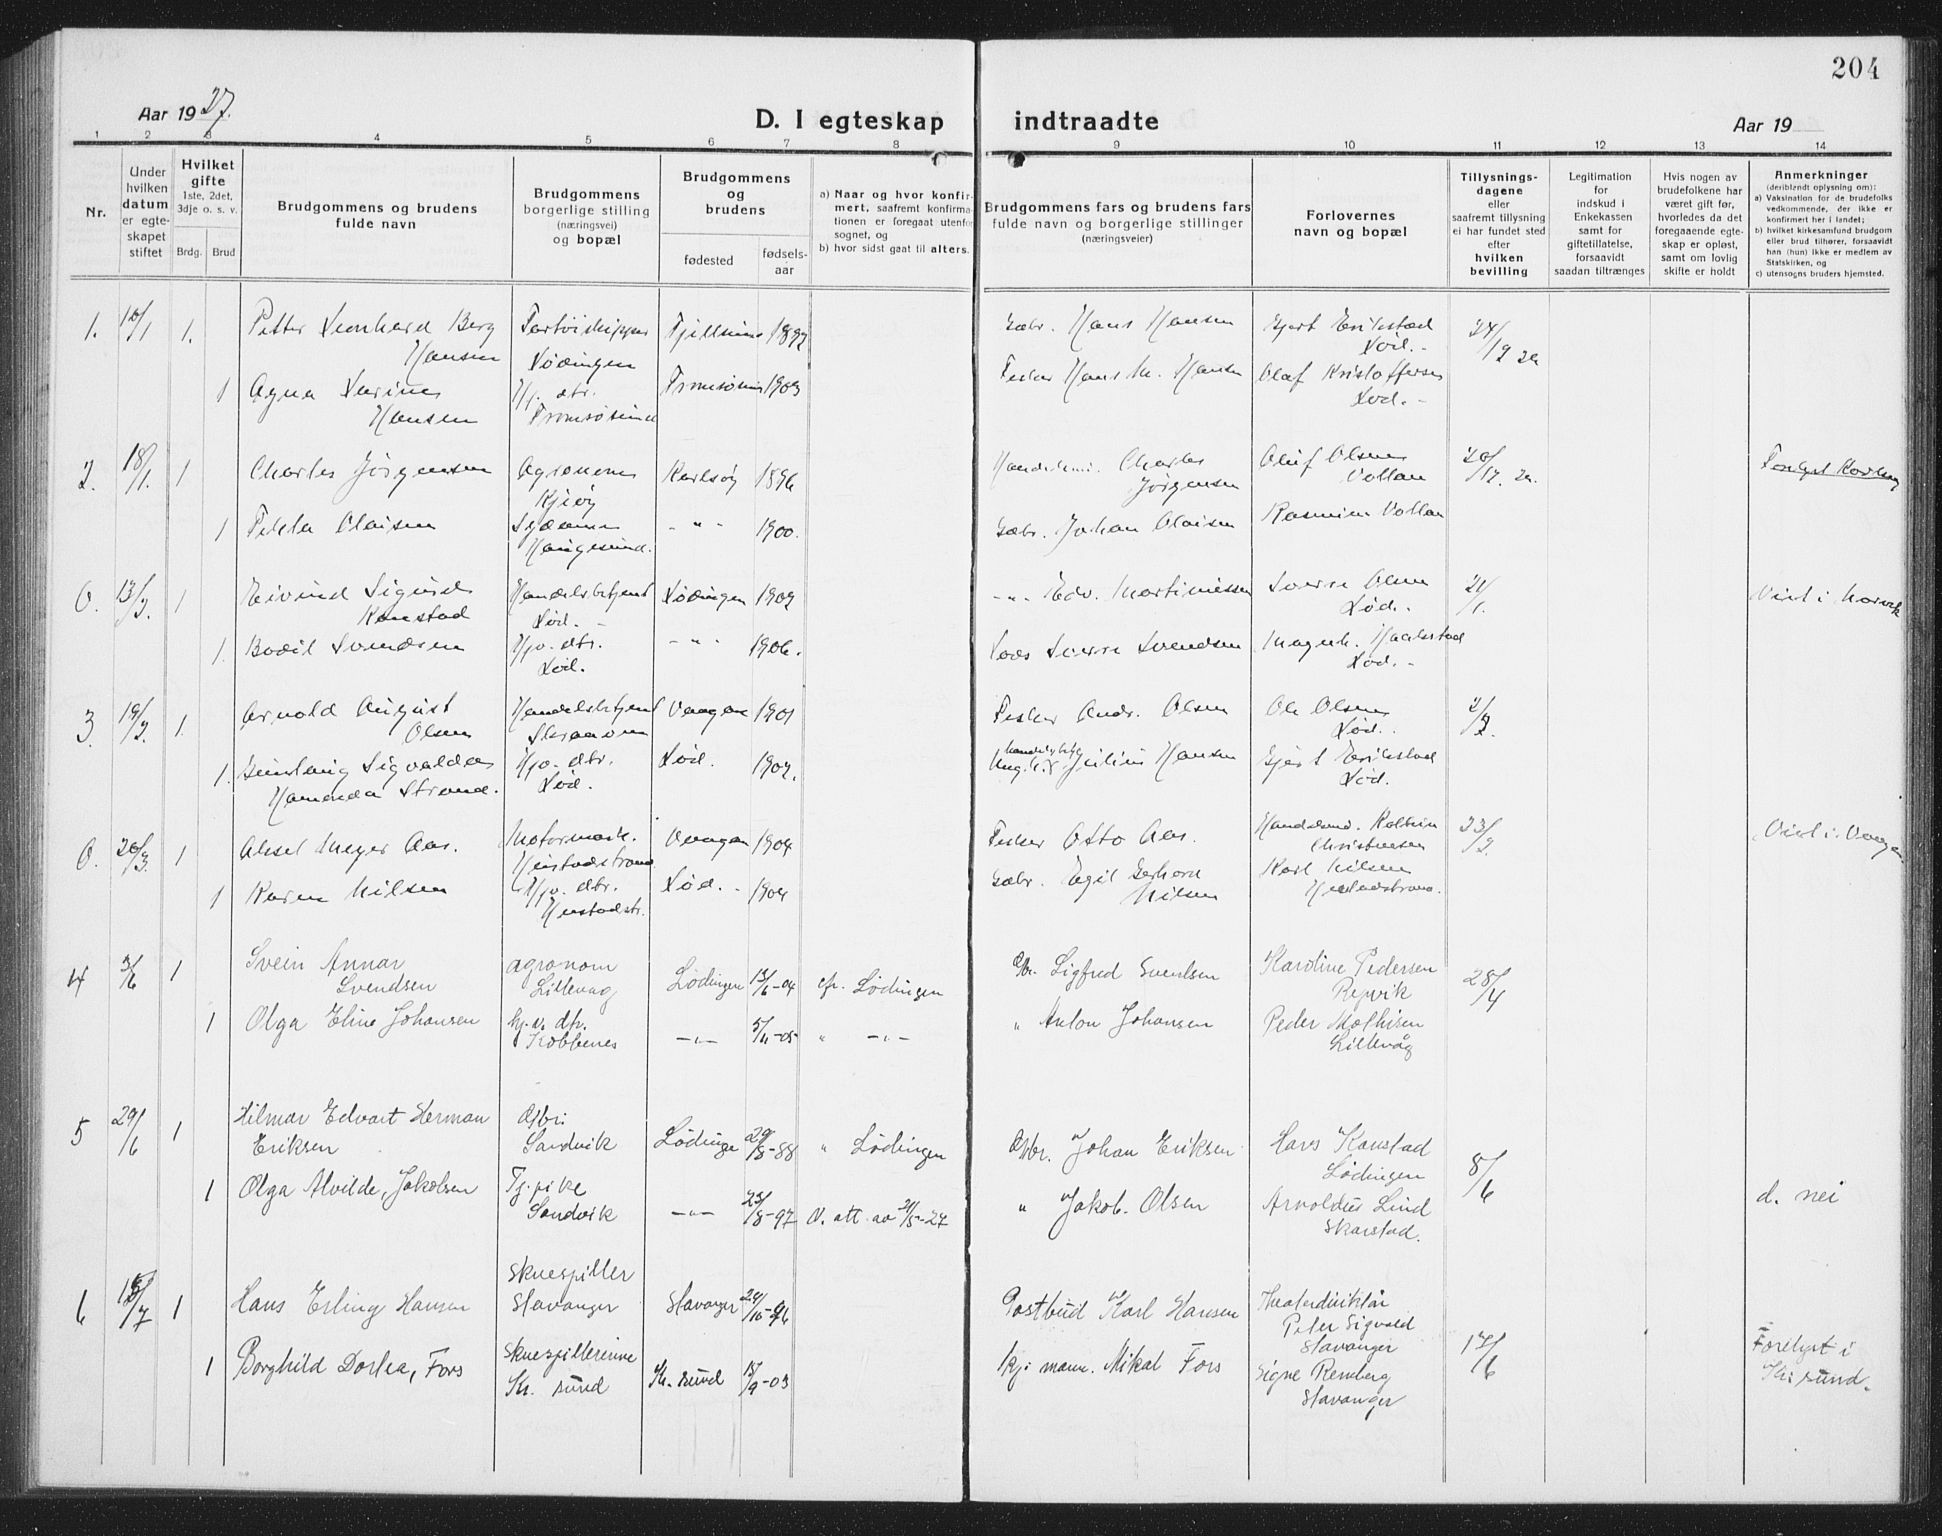 204
Aar 1927.
D. I egteskap indtraadte
Aar 19
1 2 3 4 5 6 7 8 9 10 11 12 13 14
Nr.
Under hvilken datum er egte-skapet stiftet
Hvilket gifte
1ste, 2det, 3dje o. s. v.
Brdg. Brud
Brudgommens og brudens fulde navn
Brudgommens borgerlige stilling (næringsvei) og bopæl
Brudgommens og brudens
fødested
fødsels-aar
a) Naar og hvor konfir-mert, saafremt konfirma-tionen er foregaat utenfor sognet, og
b) hvor sidst gaat til alters.
Brudgommens fars og brudens fars fulde navn og borgerlige stillinger (næringsveier)
Forlovernes navn og bopæl
Tillysnings-dagene eller saafremt tillysning ei har fundet sted efter hvilken bevilling
Legitimation for indskud i Enkekassen samt for giftetillatelse, forsaavidt saadan tiltrænges
Hvis nogen av brudefolkene har været gift før, hvorledes da det foregaaende egte-skap er opløst, samt om lovlig skifte er holdt
Anmerkninger
(deriblandt oplysning om):
a) Vaksination for de brudefolks vedkommende, der ikke er konfirmert her i landet;
b) hvilket kirkesamfund brudgom eller brud tilhører, forsaavidt han (hun) ikke er medlem av Statskirken, og
c) utensogns bruders hjemsted.
1. 10/1 1. Petter Leonhard Berg Hansen
Lødingen
Hans Hansen
Gjert Erikstad
Lød.
1 Agna Hansen
Hj. dtr.
Tromsøsund
Tromsøsund 1903
Fisker Hans M. Hansen
Olaf Kristoffersen
Lød.
2. 18/1. 1 Charles Jørgensen
Agronom
Kjiøy
Karlsøy 1896
Charles Jørgensen
Oluf Olsen
Vollan
1 Tekla Olaisen
Haugesund.
- " - 1900.
Gbr. Johan Olaisen
Rasmus Vollan
0. 13/3. 1 Eivind Sigurd Kanstad
Handelsbetjent
Lød.
Lødingen
- " - Edv. Martinussen
Sverre Olsen
Lød.
21/1.
Viet i Narvik
1. Bodil Svendsen
Hjv. dtr.
Lød.
- " - 1906.
Sverre Svendsen
Magnh. Haakstad
Lød.
3. 19/3. 1. Arnold August Olsen
Handelsbetjent
Vaagan 1901
Fisker Andr. Olsen
Ole Olsen
Lød.
1. Strand.
Hjv. dtr.
Lød.
Lød.
Julius Hansen
Gjert Erikstad
Lød.
0. 20/3. 1 Aksel Meyer Aas.
Motormask.
Vaagan 1904
Fisker Otto Aas.
Christensen
23/2.
Viet i Vaagan
1 Karen Nilsen
Hjv. dtr.
Lød. 1904
Gbr. Egil Gerhard Nilsen
Karl Nilsen
4 3/6 1 Svein Annar Svendsen
agronom
Lillevag
Lødingen 13/6-04 cfr. Lødingen
Gbr. Sigfred Svendsen
Karoline Pedersen
Repvik
28/4
1 Olga Eline Johansen
hj.v. dtr.
Kobbenes
-"- 5/11-05 " -"-
" Anton Johansen
Peder Mathisen
Lillevåg
5 29/6 1 Hilmar Edvart Herman Eriksen
Gbr.
Sandvik
Lødinge 29/8-88 " Lødingen
Gbr. Johan Eriksen
Hans Kanstad
Lødingen
8/6
1 Olga Alvilde, Jakobsen
Tj. pike
Sandvik
-"- 23/8-97 V. att. av 21/5-27
" Jakob. Olsen
Arnoldus Lind
Skarstad.
d. nei
6 1 Hans Erling Hansen
Skuespiller
Stavanger
Stavanger 24/10-96
Postbud Karl Hansen
Theaterdirektør
Peter Sigvald
Stavanger
17/6
1 Borghild Dorthea, Fors
Skuespillerinne
Kr. sund
Kr. sund 15/9-03
Mikal Fors
Signe Remberg
Stavanger
Forelyst i
Kr: sund.